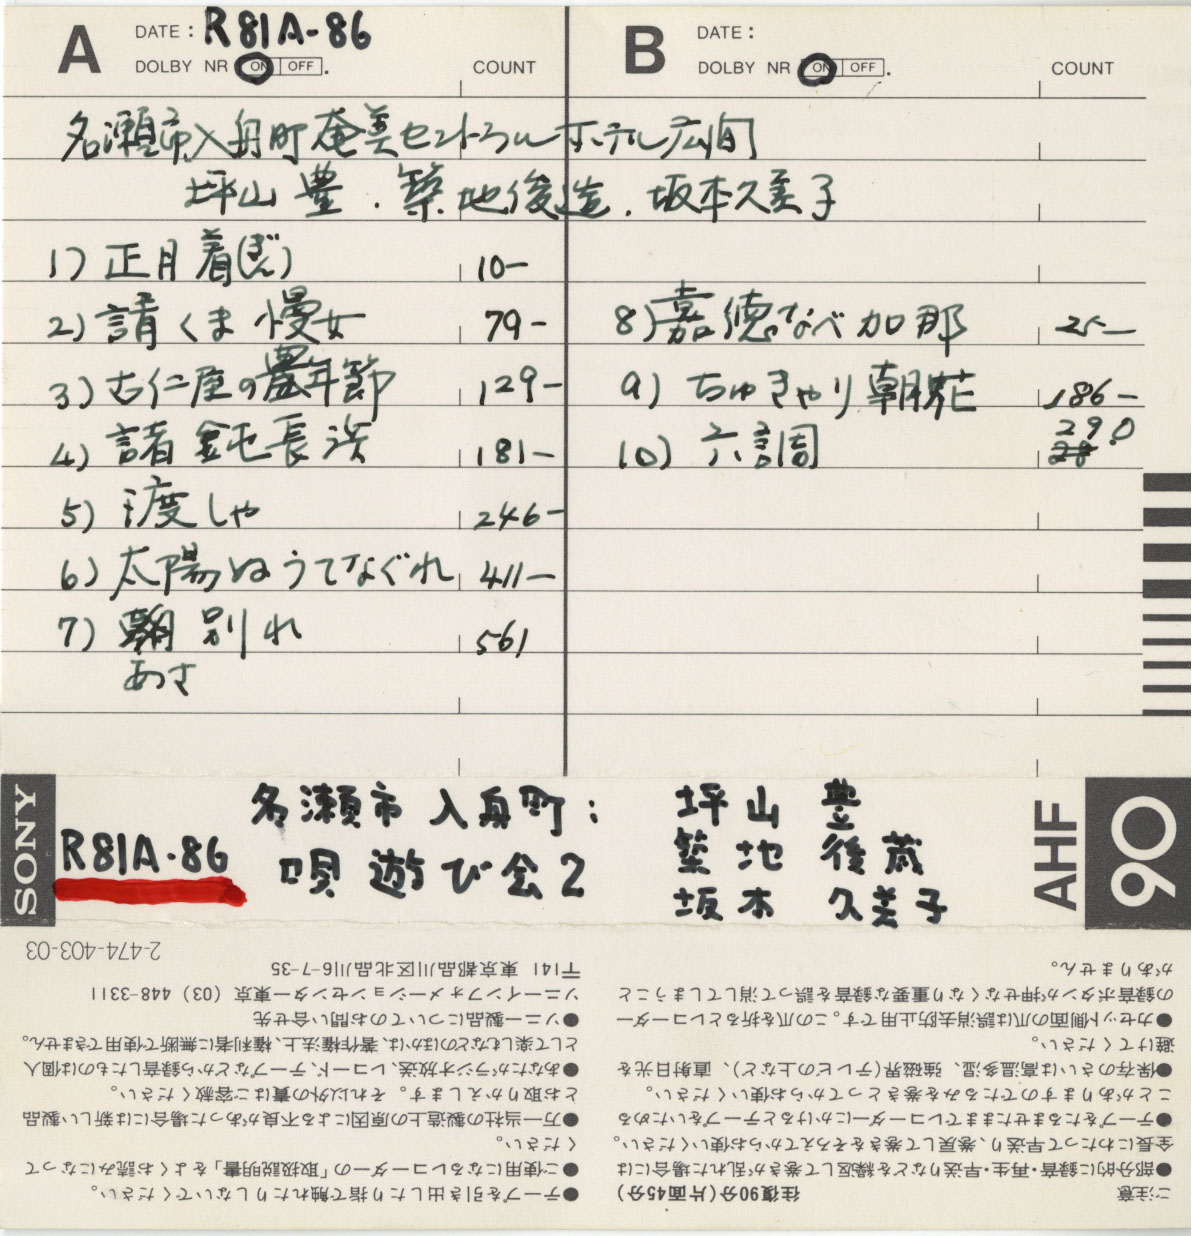 A DATE: R81A-86
DOLBY NR ON OFF. COUNT
B DATE:
DOLBY NR ON OFF. COUNT
名瀬市入舟町奄美セントラルホテル広間
坪山 豊．築地俊造．坂本久美子
1) 正月着(ぎん) 10-
2) 請くま慢女 79-
3) 古仁屋の豊年節 129-
4) 諸鈍長浜 181-
5) 渡しゃ 246-
6) 太陽ぬうてなぐれ 411-
7) 朝別れ 561
あさ
8) 嘉徳なべ加那 25-
9) ちゅきゃり朝花 186-
290
10) 六調
SONY
R81A-86
名瀬市 入舟町:
唄遊び会2
坪山 豊
築地 俊蔵
坂本 久美子
AHF
90
ご注意 往復90分(片面45分)
●部分的に録音・再生・早送りなどを繰返して巻きが乱れた場合には
全長にわたって早送り、巻戻して巻きをそろえてからお使いください。
●テープをたるませたままでレコーダーにかけるとテープをいためる
ことがありますのでたるみを巻きとってからお使いください。
●保存のさいは高温多湿、強磁界(テレビの上など)、直射日光を
避けてください。
●カセット側面の爪は誤消去防止用です。この爪を折るとレコーダー
の録音ボタンが押せなくなり重要な録音を誤って消してしまうこと
がありません。
●テープを引き出したり指で触れたりしないでください。
●ご使用になるレコーダーの「取扱説明書」をよくお読みになって
ください。
●万一当社の製造上の原因による不良があった場合には新しい製品
とお取りかえします。それ以外の責はご容赦ください。
●あなたがラジオ放送、レコード、テープなどから録音したものは個人
として楽しむなどのほかは、著作権法上、権利者に無断で使用できません。
●ソニー製品についてのお問い合せ先
ソニーインフォメーションセンター東京 (03) 448-3311
〒141 東京都品川区北品川6-7-35
2-474-403-03